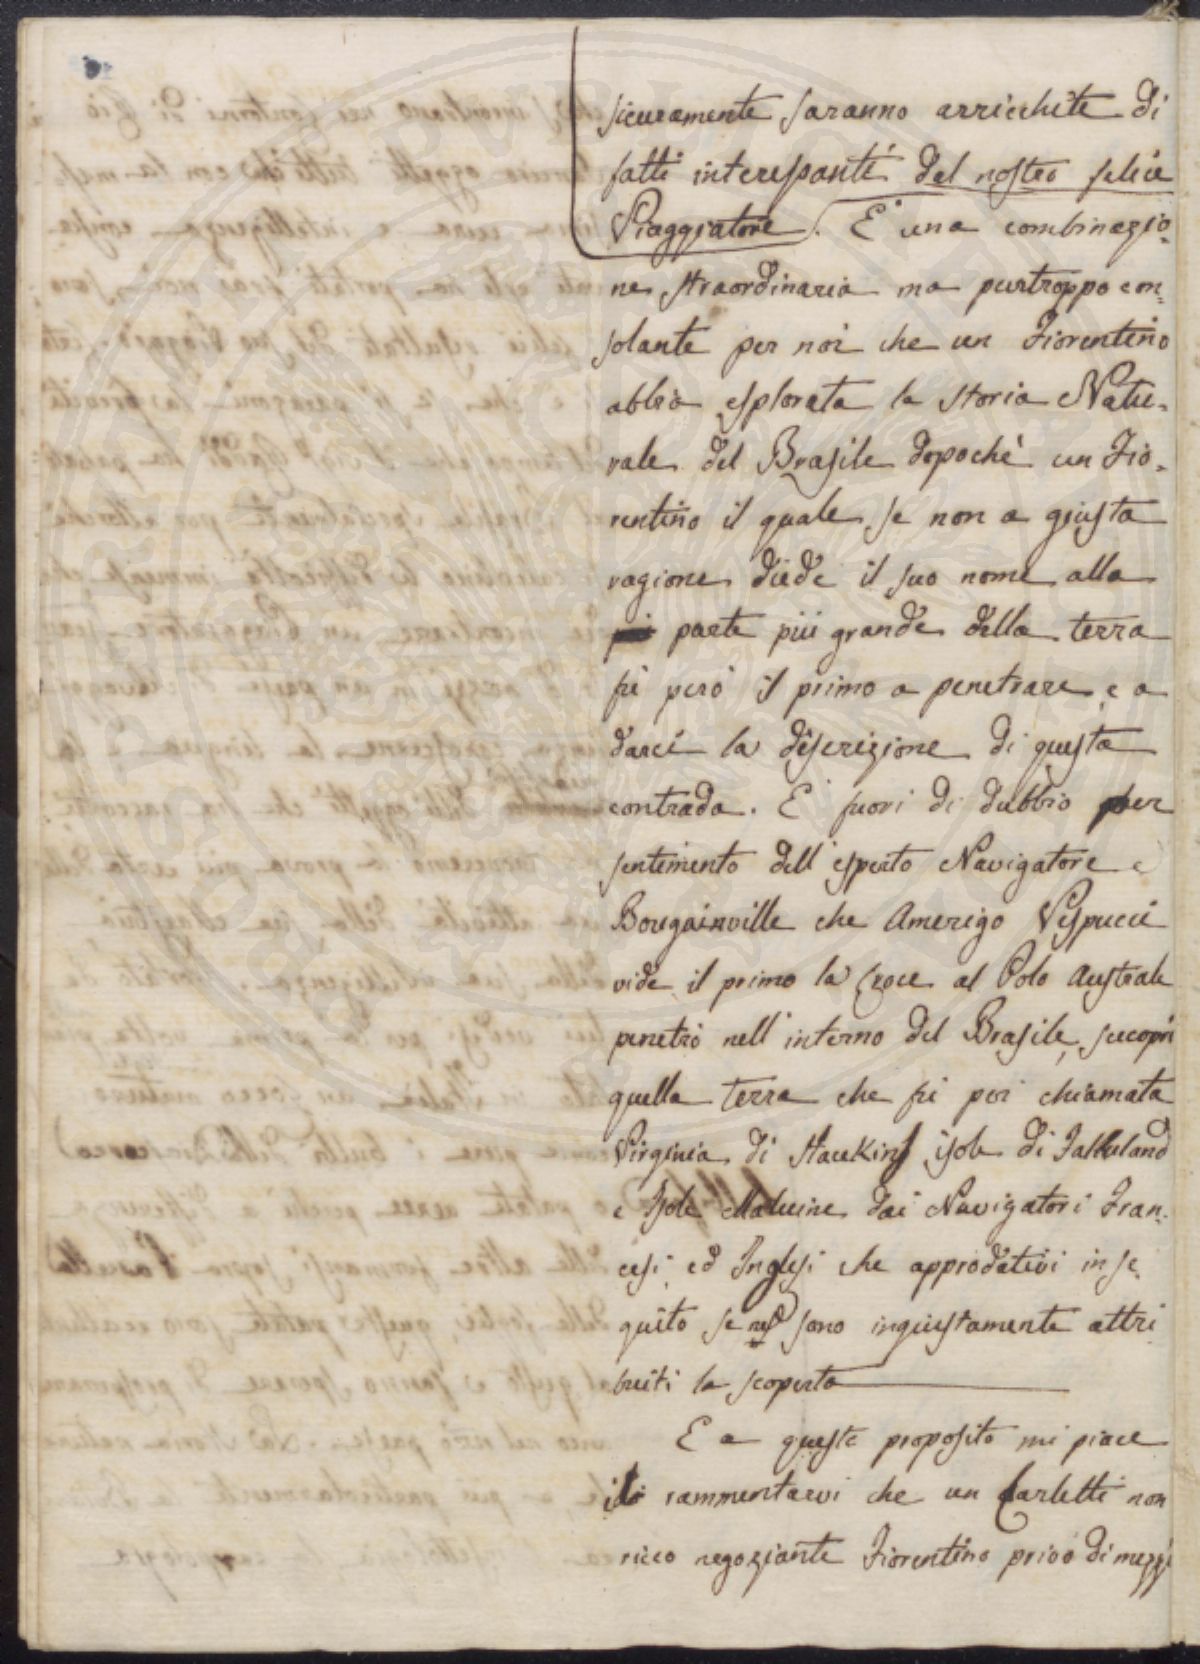 sicuramente saranno arricchite di
fatti interessanti del nostro felice
Viaggiatore. E' una combinazio=
ne straordinaria ma purtroppo con=
solante per noi che un Fiorentino
abbia esplorata la storia Natu=
rale del Brasile dopochè un Fio=
rentino il quale se non a giusta
ragione diede il suo nome alla
parte più grande della terra
fù però il primo a penetrare, e a
darci la discrizione di questa
contrada. E' fuori di dubbio per
sentimento dell'esperto Navigatore
Bougainville che Amerigo Vespucci
vide il primo la Croce al Polo Australe
penetrò nell'interno del Brasile, scoprì
quella terra che fù poi chiamata
Virginia di Haukins isole di Falkuland
e Isole Maluine dai Navigatori Fran=
cesi ed Inglesi che approdativi in se
guito se ne sono ingiustamente attri
buiti la scoperta
E a questo proposito mi piace
rammentarvi che un Carletti non
ricco negoziante Fiorentino privo di mezzi